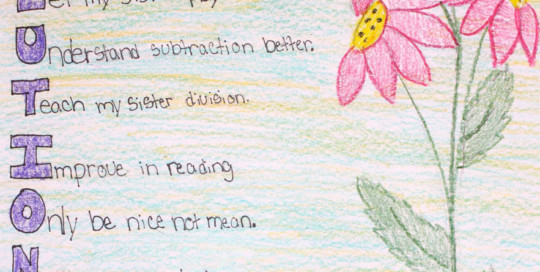 Let my sister play
Understand subtraction better.
Teach my sister division.
Improve in reading
Only be nice not mean.
N